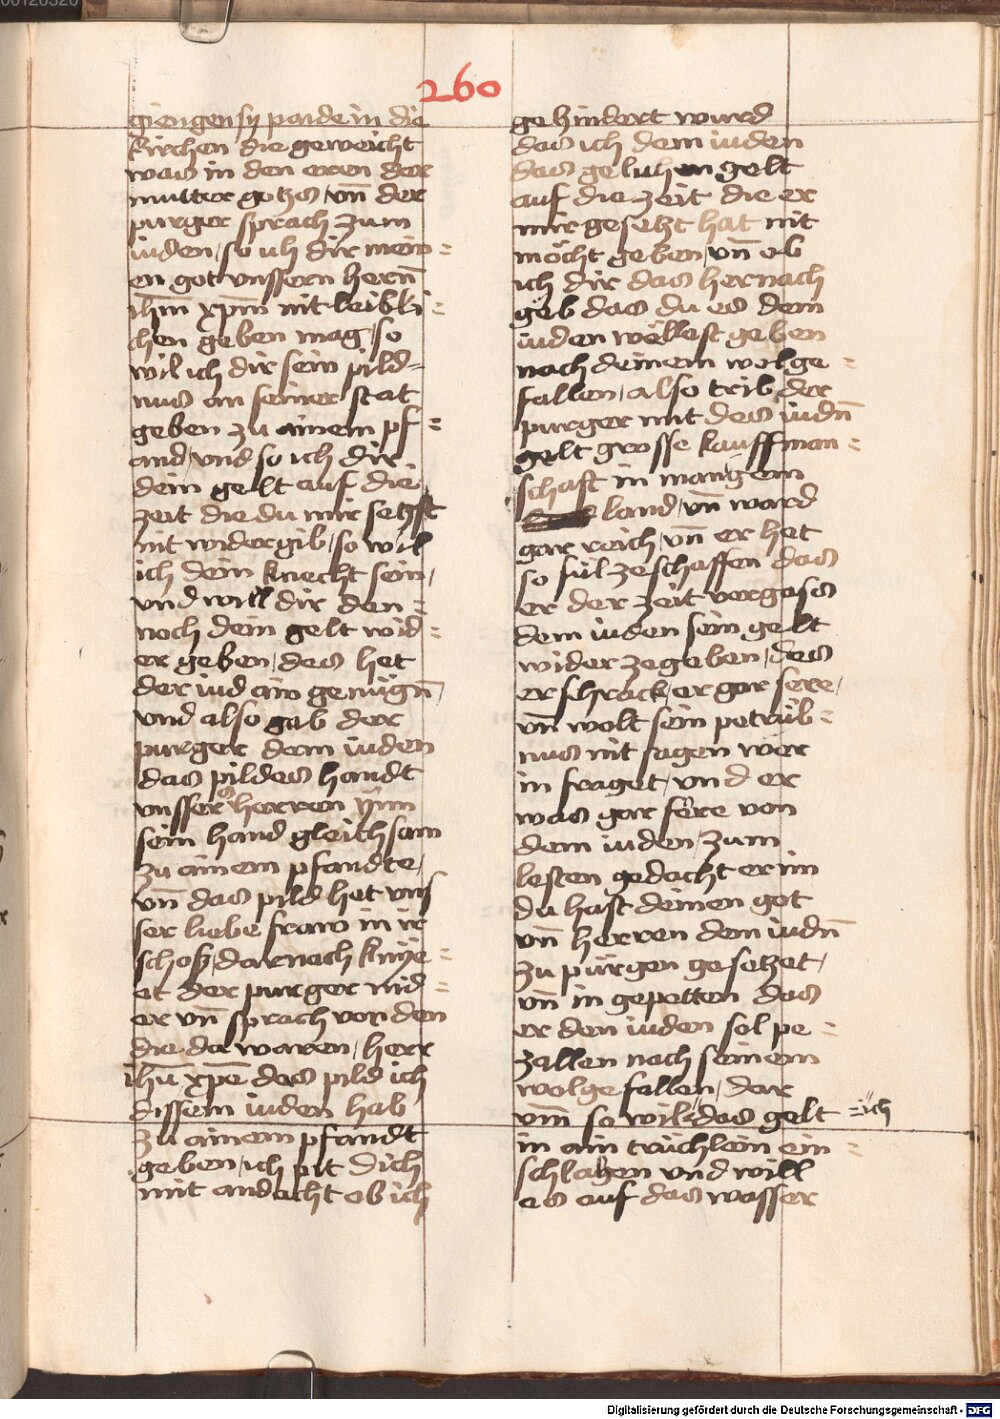 260
giengen sy paide in die
kirchen die geweicht
was in den eren der
mutter gotʒs / vn̄ der
purger sprach zum
iuden / so ich dir mein =
en got vnssern hern̄
ihm̄ xpm̄ nit leibli =
chen geben mag / so
wil ich dir sein pild=
nus an seiner stat
geben zu ainem pf =
and / vnd so ich dir
dein gelt auf die
zeit die du mir setzst
nit wider gib / so wil
ich dein knecht sein /
vnd will dir den =
noch dein gelt wid =
er geben / das het
der iud ain genügn̄ /
vnd also gab der
purger dem iuden
das pildes handt
vnssers herren ynn
sein hand gleichsam
zu ainem pfandte /
vn̄ das pild het vns
ser liebe fraw in ir
schoß / darnach knye =
et der purger nid =
er vn̄ sprach vor den
die da waren / herr
ihū xp̄e das pild ich
dissem iuden hab
zu ainem pfandt
geben / ich pit dich
mit andacht ob ich
gehindert wurd
das ich dem iuden
das geluhen gelt
auf die zeit die er
mir gesetzt hat nit
möcht geben / vn̄ ob
ich dir das hernach
geb das du es dem
iuden wöllest geben
nach deinem wolge =
fallen / also trib der
purger mit des iudn̄
gelt grosse kauffman =
schaft in mangem
land / vn̄ ward
gar reich / vn̄ er het
so fil zeschaffen das
er der zeit vergass
dem iuden sein gelt
wider zegeben / des
erschrack er gar sere /
vn̄ wolt sein petrüb =
nus nit sagen wer
in fraget / vnd er
was gar fere von
dem iuden / zum
lesten gedacht er im
du hast deinen got
vn̄ herren dem iudn̄
zu pürgen gesetzet /
vn̄ in gepetten das
er den iuden sol pe =
zallen nach seinem
wolgefallen / dar
vm̄ so wil das gelt = ich
in ain trüchlein ein =
schlahen vnd will
es auf das wasser
Digitalisierung gefördert durch die Deutsche Forschungsgemeinschaft - DFG